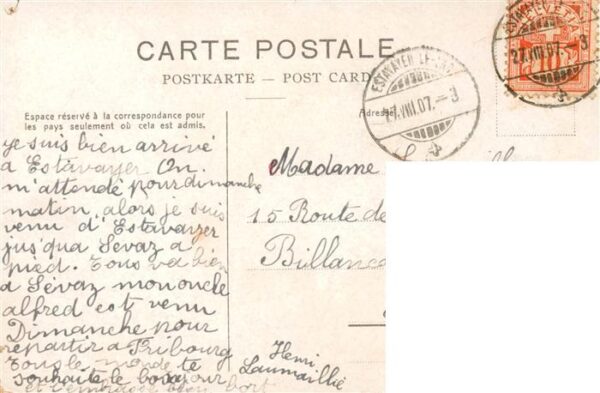 CARTE POSTALE
POSTKARTE — POST CARD
Espace réservé à la correspondance pour
les pays seulement où cela est admis.
Adresse
ESTAVAYER LE-LAC
27.VIII.07.-3
ESTAVAYER
27.VIII.07-3
HELVETIA
10
je suis bien arrivé
a Estavayer On
m'attendé pour dimanche
matin, alors je suis
venu d'Estavayer
jus'qua Sévaz a
pied. Tous va bien
a Sévaz mon oncle
alfred est venu
Dimanche pour
repartir a Fribourg
Tous le monde te
souhaite le bonjour
et t'embrasse bien fort
Henri
Laumaillié
Madame
15 Route de
Billanc